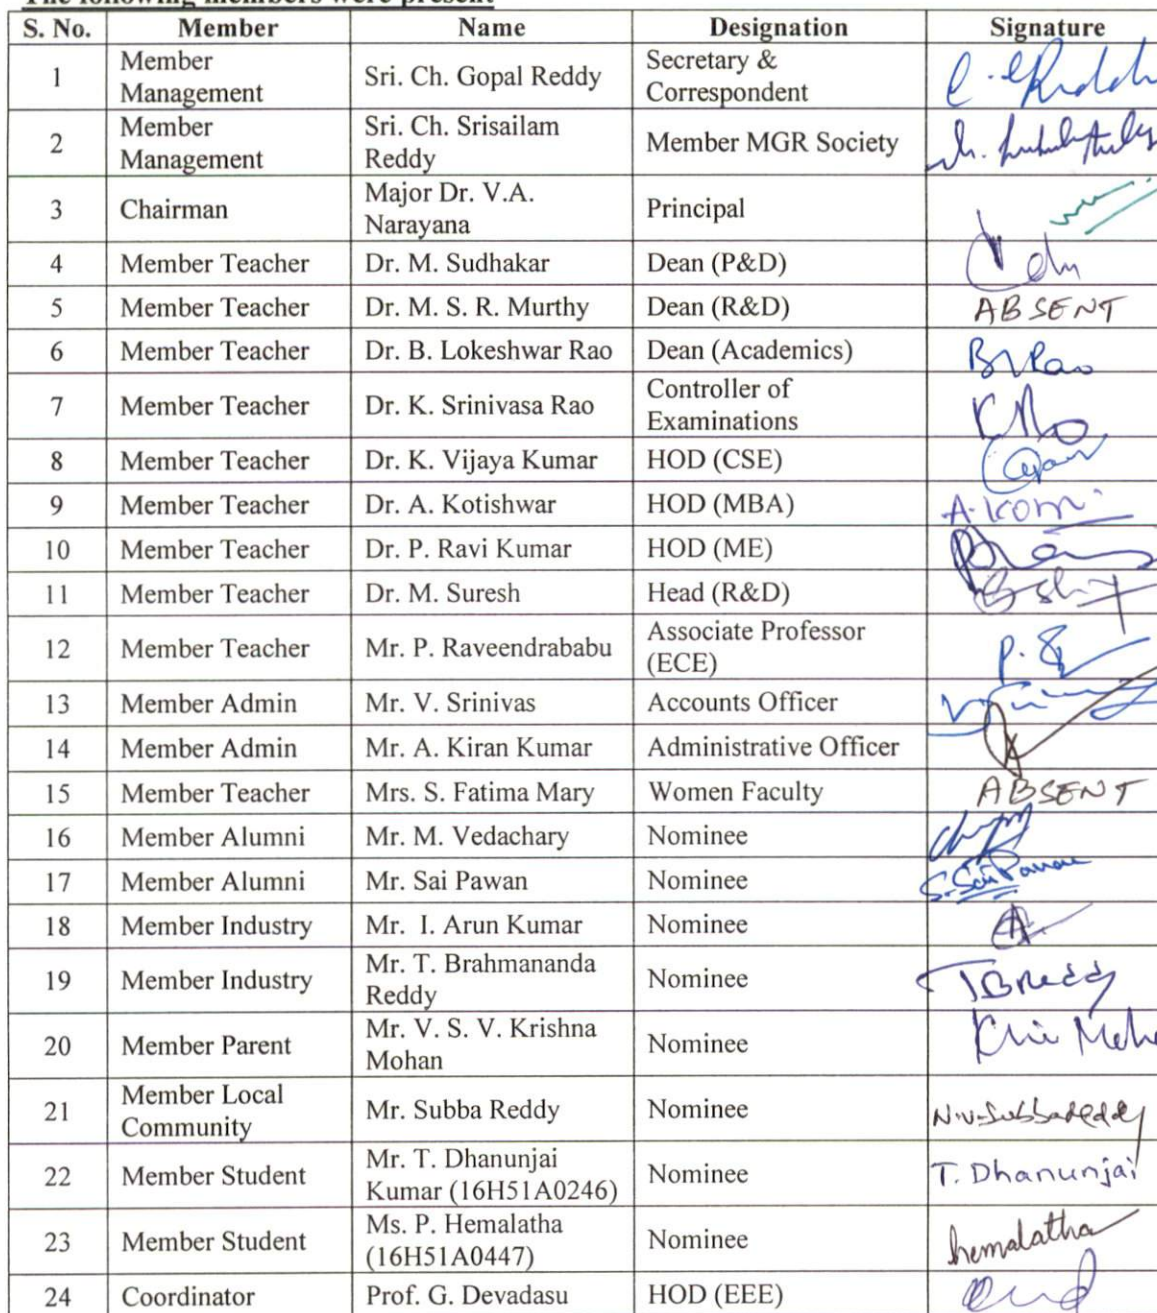 The following members were present
S. No. Member Name Designation Signature
1 Member Management Sri. Ch. Gopal Reddy Secretary & Correspondent
2 Member Management Sri. Ch. Srisailam Reddy Member MGR Society
3 Chairman Major Dr. V.A. Narayana Principal
4 Member Teacher Dr. M. Sudhakar Dean (P&D)
5 Member Teacher Dr. M. S. R. Murthy Dean (R&D) ABSENT
6 Member Teacher Dr. B. Lokeshwar Rao Dean (Academics)
7 Member Teacher Dr. K. Srinivasa Rao Controller of Examinations
8 Member Teacher Dr. K. Vijaya Kumar HOD (CSE)
9 Member Teacher Dr. A. Kotishwar HOD (MBA)
10 Member Teacher Dr. P. Ravi Kumar HOD (ME)
11 Member Teacher Dr. M. Suresh Head (R&D)
12 Member Teacher Mr. P. Raveendrababu Associate Professor (ECE)
13 Member Admin Mr. V. Srinivas Accounts Officer
14 Member Admin Mr. A. Kiran Kumar Administrative Officer
15 Member Teacher Mrs. S. Fatima Mary Women Faculty ABSENT
16 Member Alumni Mr. M. Vedachary Nominee
17 Member Alumni Mr. Sai Pawan Nominee
18 Member Industry Mr. I. Arun Kumar Nominee
19 Member Industry Mr. T. Brahmananda Reddy Nominee
20 Member Parent Mr. V. S. V. Krishna Mohan Nominee
21 Member Local Community Mr. Subba Reddy Nominee
22 Member Student Mr. T. Dhanunjai Kumar (16H51A0246) Nominee T. Dhanunjai
23 Member Student Ms. P. Hemalatha (16H51A0447) Nominee hemalatha
24 Coordinator Prof. G. Devadasu HOD (EEE)